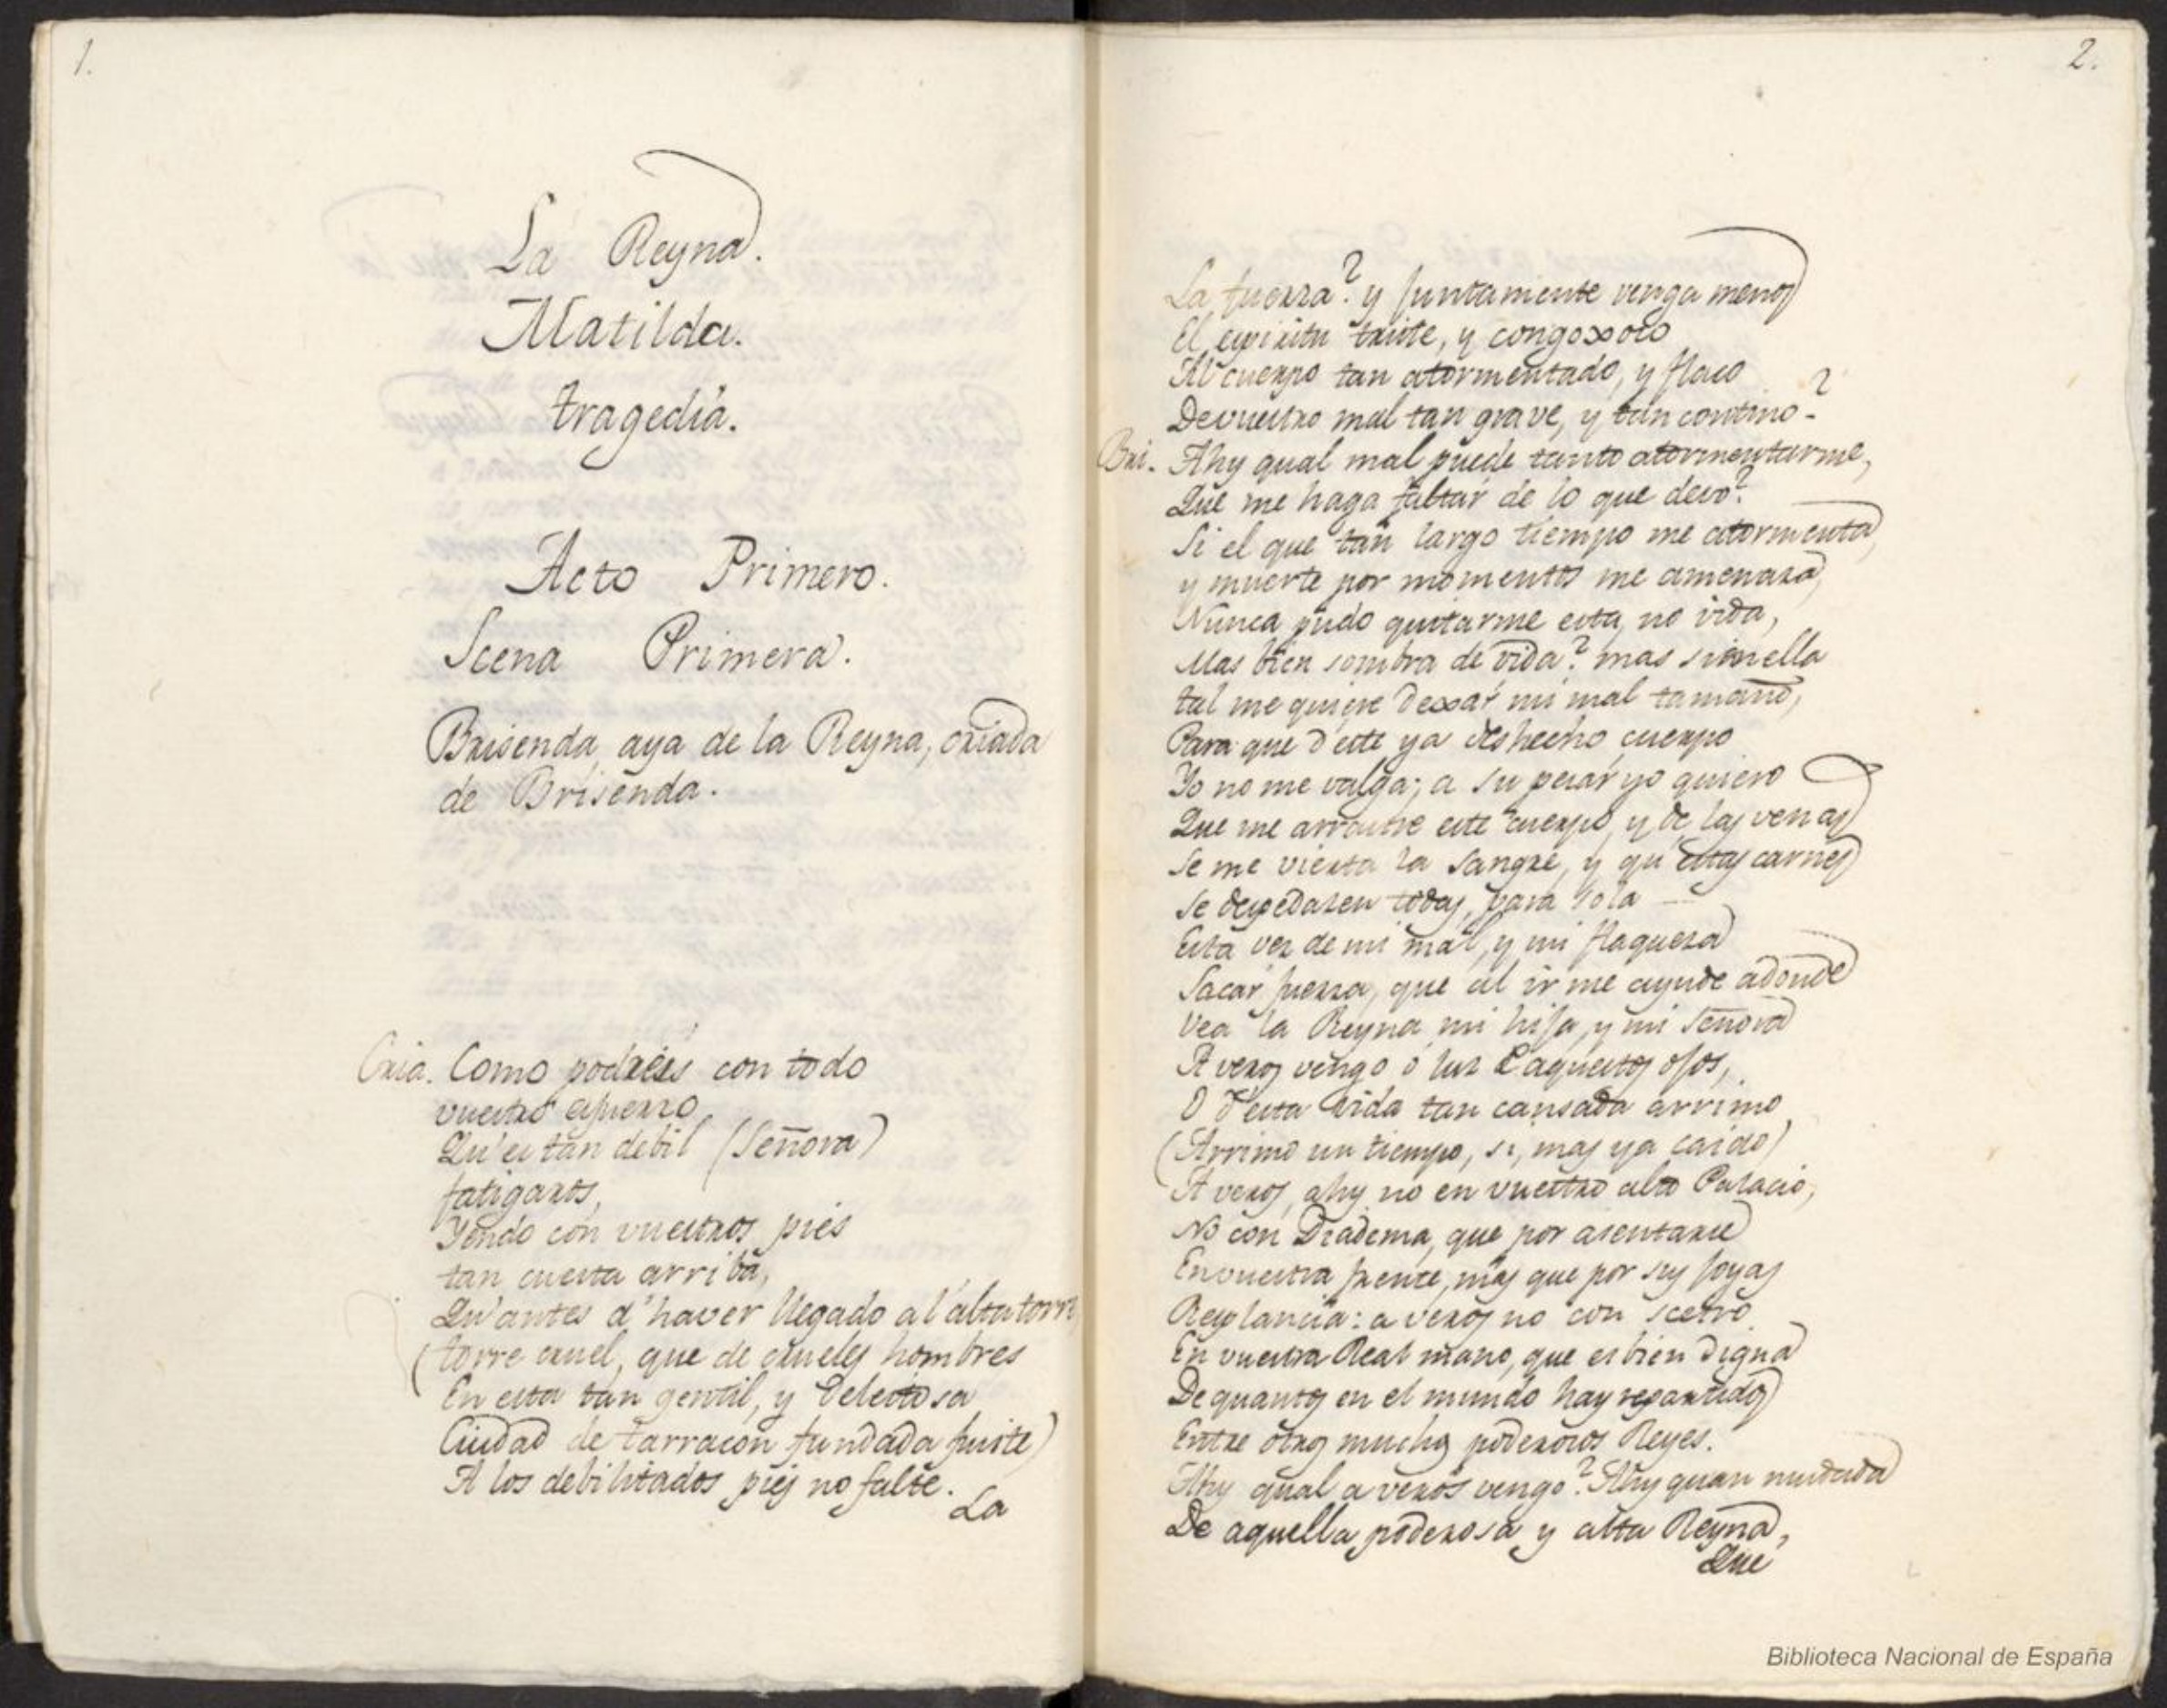 1.
La Reyna.
Matilda.
tragedia.
Acto Primero.
Scena Primera.
Brisenda, aya de la Reyna, criada
de Brisenda.
Cria. Como podreis con todo
vuestro esfuerzo
Qu'es tan debil (Señora)
fatigaros,
Yendo con vuestros pies
tan cuesta arriba,
Qu'antes d'haver llegado a l'alta torre
(torre cruel, que de crueles hombres
En esta tan gentil, y deleitosa
Ciudad de tarracon fundada fuiste)
A los debilitados pies no falte.
La
2.
La fuerza? y juntamente venga menos
El espiritu triste, y congoxoso
Al cuerpo tan atormentado, y flaco
De vuestro mal tan grave, y tan contino?
Bri. Ahy qual mal puede tanto atormentarme,
Que me haga faltar de lo que devo?
Si el que tan largo tiempo me atormenta,
y muerte por momentos me amenaza,
Nunca pudo quitarme esta, no vida,
Mas bien sombra de vida? mas si en ella
tal me quiere dexar mi mal tamaño,
Para que d'este ya deshecho cuerpo
Yo no me valga; a su pesar yo quiero
Que me arrastre este cuerpo, y de las venas
Se me vierta la sangre, y qu'estas carnes
Se despedazen todas, para sola
Esta vez de mi mal, y mi flaqueza
Sacar fuerza, que al ir me ayude adonde
Vea la Reyna mi hija, y mi Señora
A veros vengo o luz d'aquestos ojos,
O d'esta vida tan cansada arrimo
(Arrimo un tiempo, si, mas ya caido)
A veros, ahy no en vuestro alto Palacio,
No con Diadema, que por asentarse
En vuestra frente, mas que por sus joyas
Resplancia: a veros no con scetro
En vuestra Real mano, que es bien digna
De quantos en el mundo hay repartidos
Entre otros muchos poderosos Reyes.
Ahy qual a veros vengo? Ahy quan mudada
De aquella poderosa y alta Reyna,
Que
Biblioteca Nacional de España